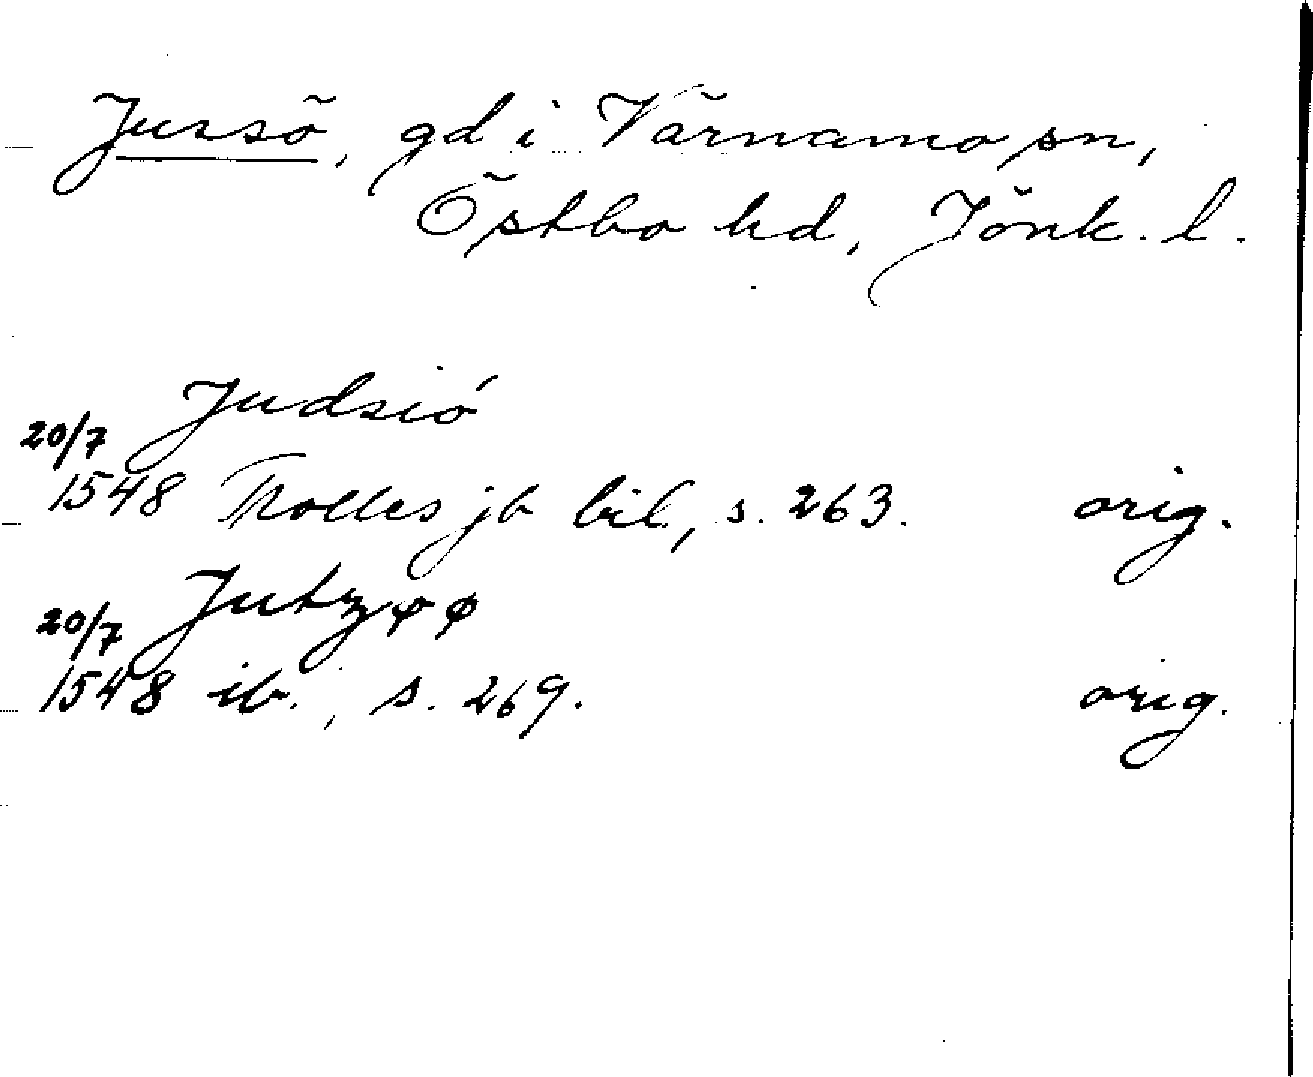 Jussö, gd i Värnamo sn,
Östbo hd, Jönk. l.
Judsió
20/7
1548 Trolles jb bil, s. 263. orig.
Jutzøø
20/7
1548 ib., s. 269. orig.